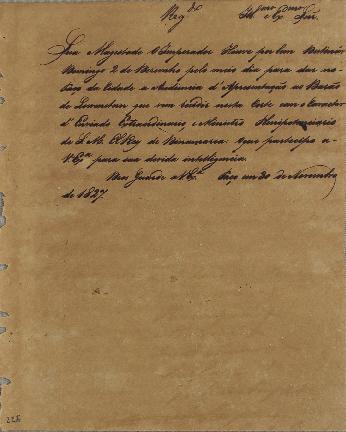 Reg.do Illmo e Exmo Snr.
Sua Magestade o Imperador Houve por bem
Domingo 2 de Dezembro pelo meio dia para dar no
Paço da Cidade a Audiencia d'Apresentação ao Barão
de que vem rezidir nesta Corte com o Caracter
d'Enviado Extraordinario e Ministro Plenipotenciario
de S. M. El Rey de Dinamarca: o que participo a
V. Exa para sua devida intelligencia.
Deos Guarde a V. Exa Paço em 30 de Novembro
de 1827.